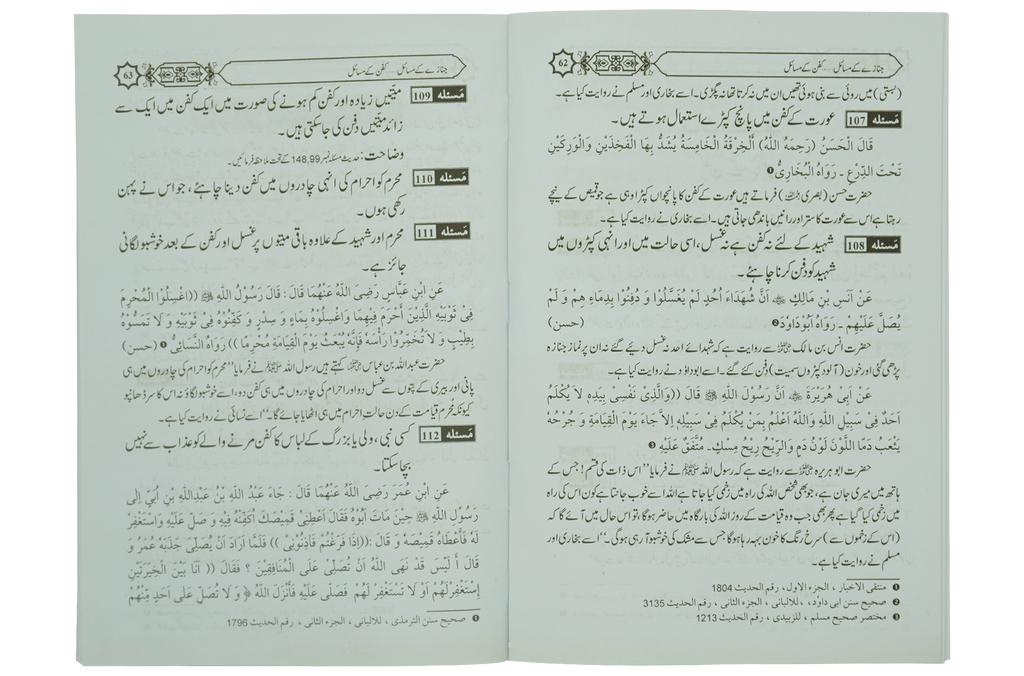 62
جنازے کے مسائل.....کفن کے مسائل
(بستی) میں روئی سے بنی ہوئی تھیں ان میں نہ کرتا تھا نہ پگڑی۔ اسے بخاری اور مسلم نے روایت کیا ہے۔
مَسئله 107 عورت کے کفن میں پانچ کپڑے استعمال ہوتے ہیں۔
قَالَ الْحَسَنُ (رَحِمَهُ اللّٰهُ) اَلْخِرْقَةُ الْخَامِسَةُ يُشَدُّ بِهَا الْفَخِذَيْنِ وَالْوَرِكَيْنِ
تَحْتَ الدِّرْعِ ـ رَوَاهُ الْبُخَارِيُّ ❶
حضرت حسن (بصری رحمہ اللہ) فرماتے ہیں عورت کے کفن کا پانچواں کپڑا وہی ہے جو قمیص کے نیچے
رہتا ہے اس سے عورت کا ستر اور رانیں باندھی جاتی ہیں۔ اسے بخاری نے روایت کیا ہے۔
مَسئله 108 شہید کے لئے نہ کفن ہے نہ غسل، اسی حالت میں اور انہی کپڑوں میں
شہید کو دفن کرنا چاہئے۔
عَنْ اَنَسِ بْنِ مَالِكٍ ﷜ اَنَّ شُهَدَاءَ اُحُدٍ لَمْ يُغَسَّلُوْا وَ دُفِنُوْا بِدِمَاءِ هِمْ وَ لَمْ
يُصَلَّ عَلَيْهِمْ ـ رَوَاهُ اَبُوْدَاوٗدَ ❷ (حسن)
حضرت انس بن مالک ﷜ سے روایت ہے کہ شہدائے احد نہ غسل دیئے گئے نہ ان پر نماز جنازہ
پڑھی گئی اور خون (آلود کپڑوں سمیت) دفن کئے گئے۔ اسے ابوداؤد نے روایت کیا ہے۔
عَنْ اَبِىْ هُرَيْرَةَ ﷜ اَنَّ رَسُوْلَ اللّٰهِ ﷺ قَالَ ((وَالَّذِىْ نَفْسِىْ بِيَدِهٖ لاَ يُكْلَمُ
اَحَدٌ فِىْ سَبِيْلِ اللّٰهِ وَاللّٰهُ اَعْلَمُ بِمَنْ يُكْلَمُ فِىْ سَبِيْلِهٖ اِلاَّ جَاءَ يَوْمَ الْقِيَامَةِ وَ جُرْحُهٗ
يَثْعَبُ دَمًا اللَّوْنُ لَوْنُ دَمٍ وَالرِّيْحُ رِيْحُ مِسْكٍ ـ مُتَّفَقٌ عَلَيْهِ ❸
حضرت ابو ہریرہ ﷜ سے روایت ہے کہ رسول اللہ ﷺ نے فرمایا "اس ذات کی قسم! جس کے
ہاتھ میں میری جان ہے، جو بھی شخص اللہ کی راہ میں زخمی کیا جاتا ہے اللہ اسے خوب جانتا ہے کون اس کی راہ
میں زخمی کیا گیا ہے پھر بھی جب وہ قیامت کے روز اللہ کی بارگاہ میں حاضر ہو گا، تو اس حال میں آئے گا کہ
(اس کے زخموں سے) سرخ رنگ کا خون بہہ رہا ہو گا جس سے مشک کی خوشبو آ رہی ہو گی۔" اسے بخاری اور
مسلم نے روایت کیا ہے۔
❶ منتقی الاخبار ، الجزء الاول ، رقم الحديث 1804
❷ صحيح سنن ابی داؤد، ، للالبانی ، الجزء الثانی ، رقم الحديث 3135
❸ مختصر صحيح مسلم ، للزبيدی ، رقم الحديث 1213
63
جنازے کے مسائل.....کفن کے مسائل
مَسئله 109 میتیں زیادہ اور کفن کم ہونے کی صورت میں ایک کفن میں ایک سے
زائد میتیں دفن کی جا سکتی ہیں۔
وضاحت: حدیث مسئلہ نمبر 148,99 کے تحت ملاحظہ فرمائیں۔
مَسئله 110 محرم کو احرام کی انہی چادروں میں کفن دینا چاہئے، جو اس نے پہن
رکھی ہوں۔
مَسئله 111 محرم اور شہید کے علاوہ باقی میتوں پر غسل اور کفن کے بعد خوشبو لگانی
جائز ہے۔
عَنِ ابْنِ عَبَّاسٍ رَضِىَ اللّٰهُ عَنْهُمَا قَالَ : قَالَ رَسُوْلُ اللّٰهِ ﷺ ((اغْسِلُوْا الْمُحْرِمَ
فِىْ ثَوْبَيْهِ الَّذِيْنَ اَحْرَمَ فِيْهِمَا وَاغْسِلُوْهُ بِمَاءٍ وَ سِدْرٍ وَ كَفِّنُوْهُ فِىْ ثَوْبَيْهِ وَ لاَ تَمَسُّوْهُ
بِطِيْبٍ وَ لاَ تُخَمِّرُوْا رَأْسَهٗ فَإِنَّهٗ يُبْعَثُ يَوْمَ الْقِيَامَةِ مُحْرِمًا )) رَوَاهُ النَّسَائِىُّ ❶ (حسن)
حضرت عبداللہ بن عباس ﷠ کہتے ہیں رسول اللہ ﷺ نے فرمایا "محرم کو احرام کی چادروں میں ہی
پانی اور بیری کے پتوں سے غسل دو اور احرام کی چادروں میں ہی کفن دو، اسے خوشبو نہ لگاؤ نہ اس کا سر ڈھانپو
کیونکہ محرم قیامت کے دن حالت احرام میں ہی اٹھایا جائے گا۔" اسے نسائی نے روایت کیا ہے۔
مَسئله 112 کسی نبی، ولی یا بزرگ کے لباس کا کفن مرنے والے کو عذاب سے نہیں
بچا سکتا۔
عَنِ ابْنِ عُمَرَ رَضِىَ اللّٰهُ عَنْهُمَا قَالَ : جَاءَ عَبْدُ اللّٰهِ بْنُ عَبْدِاللّٰهِ بْنِ اُبَىٍّ اِلٰى
رَسُوْلِ اللّٰهِ ﷺ حِيْنَ مَاتَ اَبُوْهُ فَقَالَ اَعْطِنِىْ قَمِيْصَكَ اُكَفِّنُهُ فِيْهِ وَ صَلِّ عَلَيْهِ وَاسْتَغْفِرْ
لَهٗ فَأَعْطَاهُ قَمِيْصَهٗ وَ قَالَ :((إِذَا فَرَغْتُمْ فَاٰذِنُوْنِىْ )) فَلَمَّا اَرَادَ اَنْ يُّصَلِّىَ جَذَبَهٗ عُمَرُ وَ
قَالَ اَ لَيْسَ قَدْ نَهَى اللّٰهُ اَنْ تُصَلِّىَ عَلَى الْمُنَافِقِيْنَ ؟ فَقَالَ (( اَنَا بَيْنَ الْخِيَرَتَيْنِ
اِسْتَغْفِرْلَهُمْ اَوْ لاَ تَسْتَغْفِرْ لَهُمْ فَصَلّٰى عَلَيْهِ فَأَنْزَلَ اللّٰهُ ﴿ وَ لاَ تُصَلِّ عَلٰى اَحَدٍ مِّنْهُمْ
❶ صحيح سنن الترمذی ، للالبانی ، الجزء الثانی ، رقم الحديث 1796